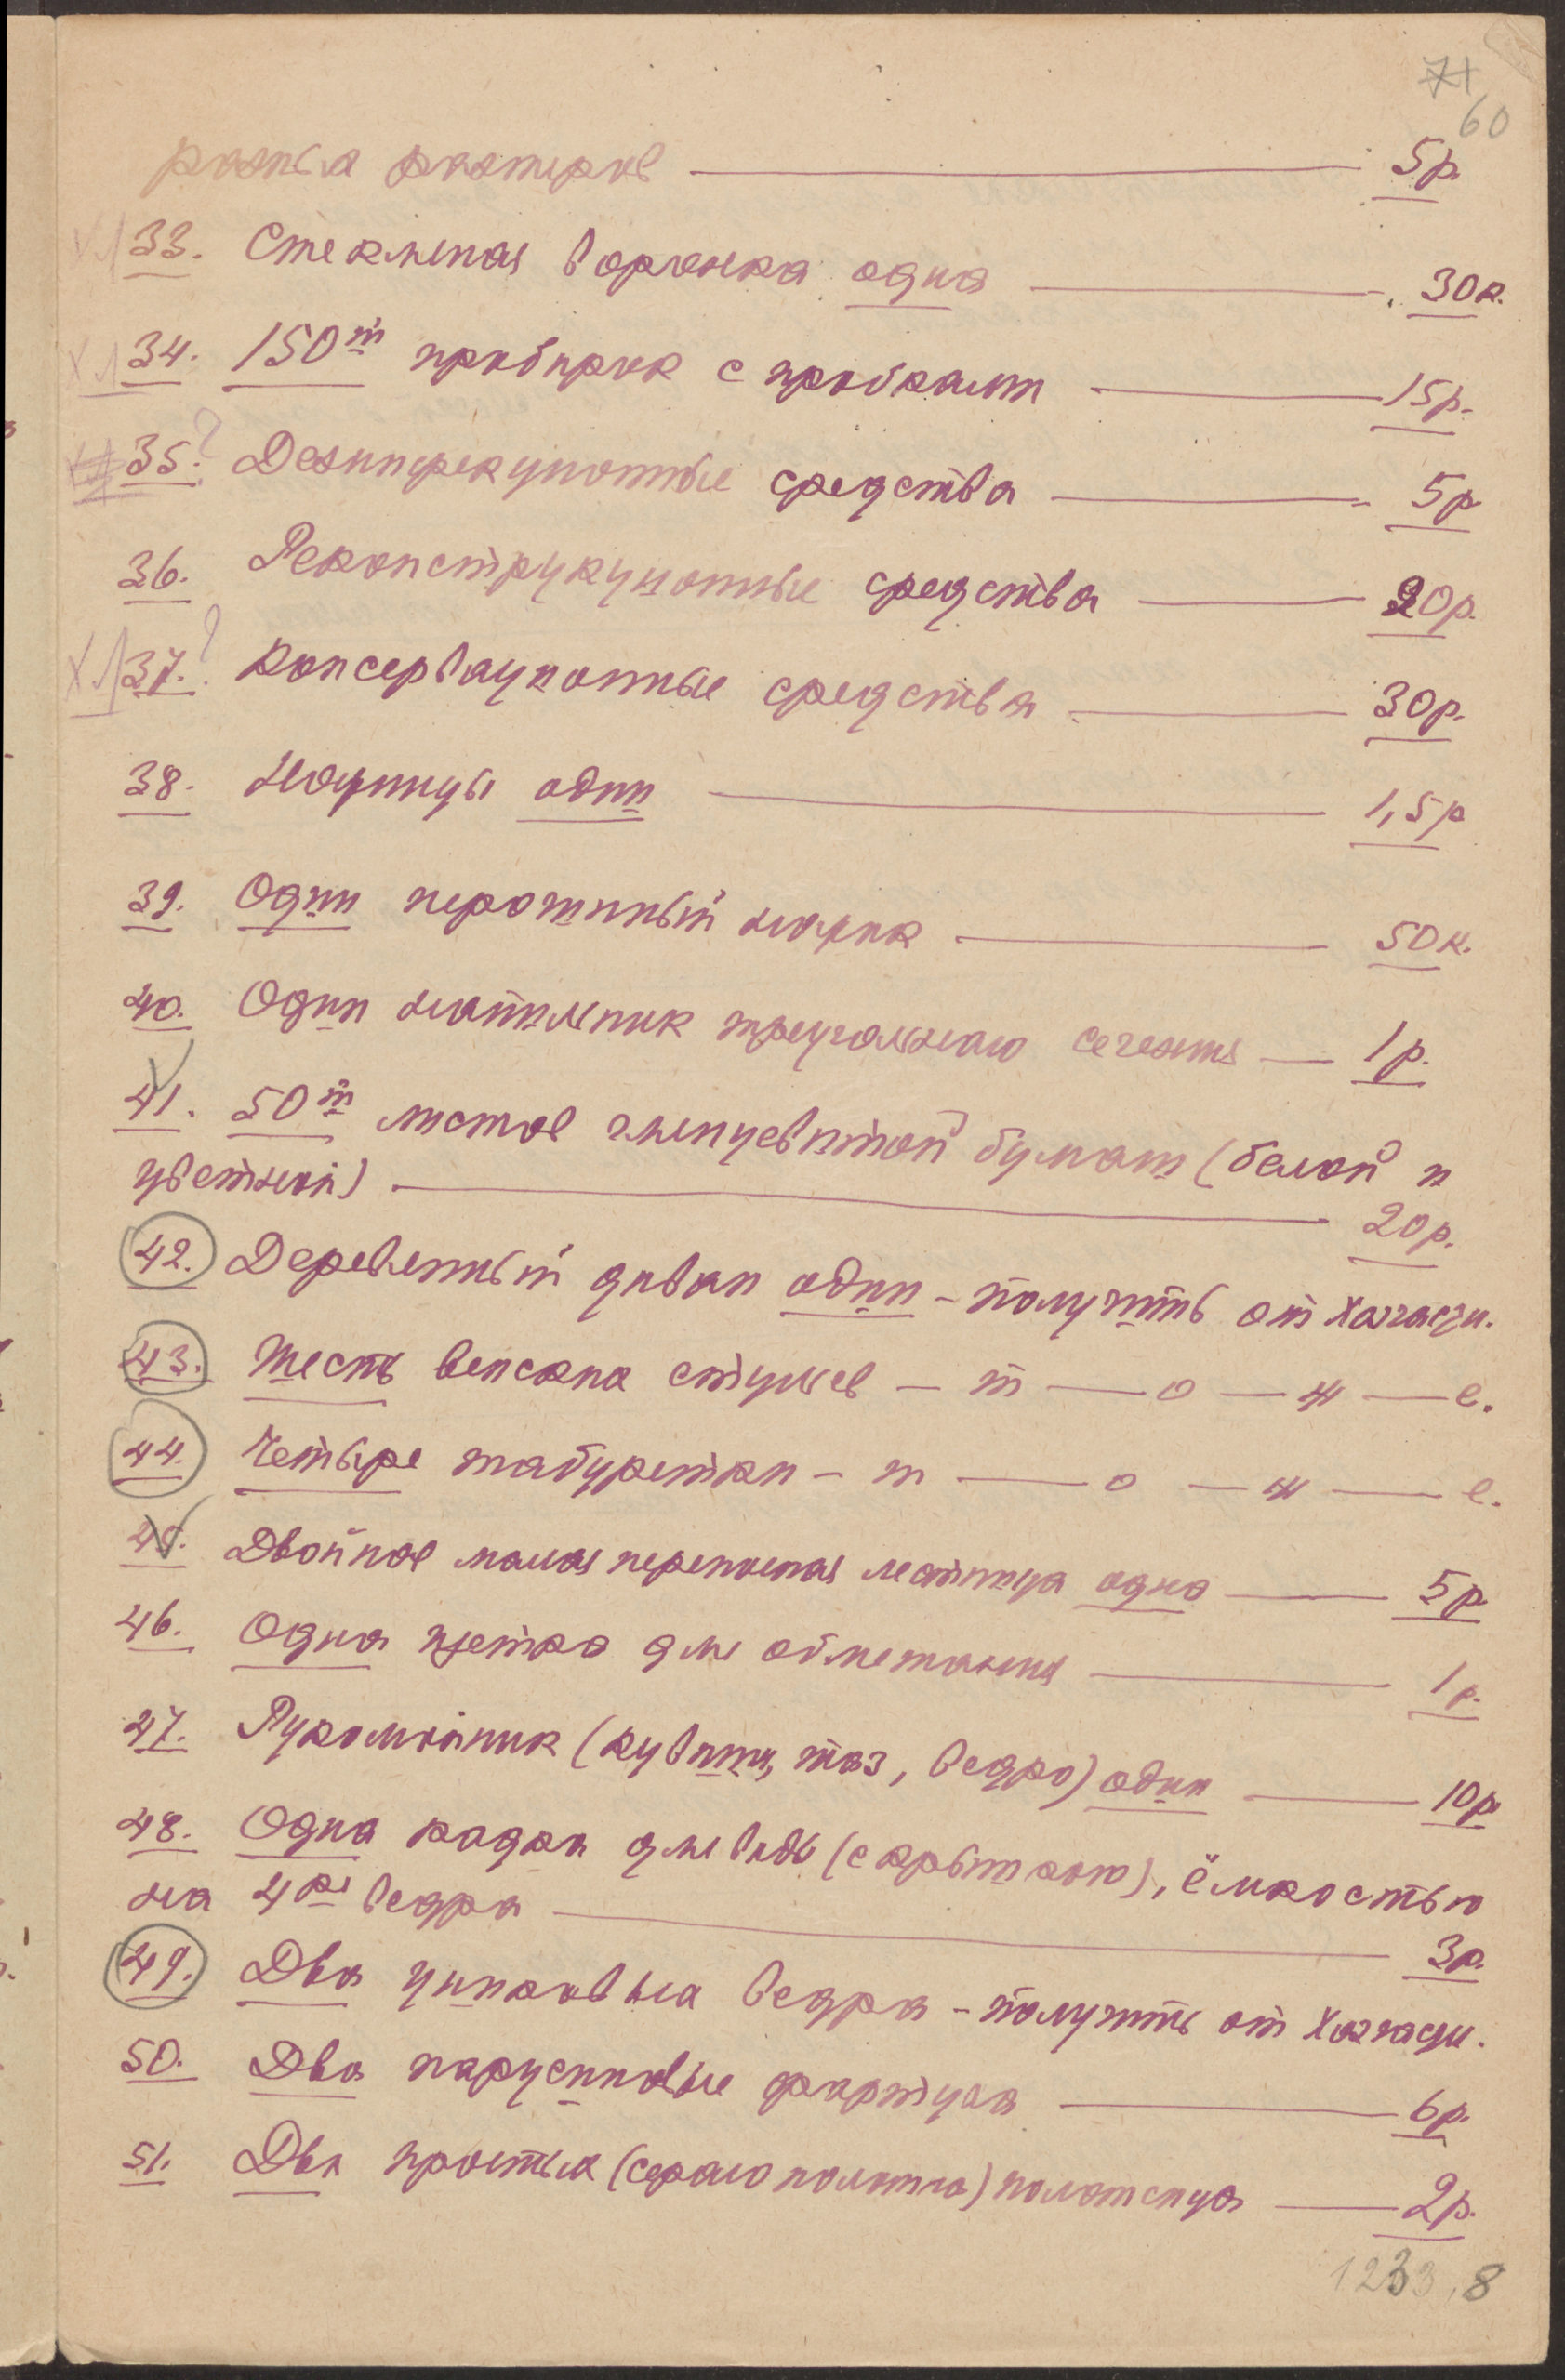 71
60
разных размеров — 5р.
33. Стеклянная воронка одна — 30к.
34. 150т пробирок с пробками — 15р.
35.? Дезинфекционные средства — 5р.
36. Реконструкционные средства — 20р.
37.? Консервационные средства — 30р.
38. Ножницы одни — 1,5р
39. Один перочинный ножик — 50к.
40. Один напильник треугольного сечения — 1р.
41. 50т листов глянцевитой бумаги (белой и
цветной) — 20р.
42. Деревенный диван один – получить от Хозчасти.
43. Шесть венских стульев — т — о — ж — е.
44. Четыре табуретки – т — о — ж — е.
45. Двойная малая переносная лестница одна — 5р.
46. Одна щетка для обметания — 1р.
47. Рукомойник (кувшин, таз, ведро) один — 10р
48. Одна кадка для воды (с крышкою), ёмкостью
на 4ре ведра — 3р.
49. Два цинковых ведра – получить от Хозчасти.
50. Два парусиновые фартука — 6р.
51. Два простых (серого полотна) полотенца — 2р.
1233,8